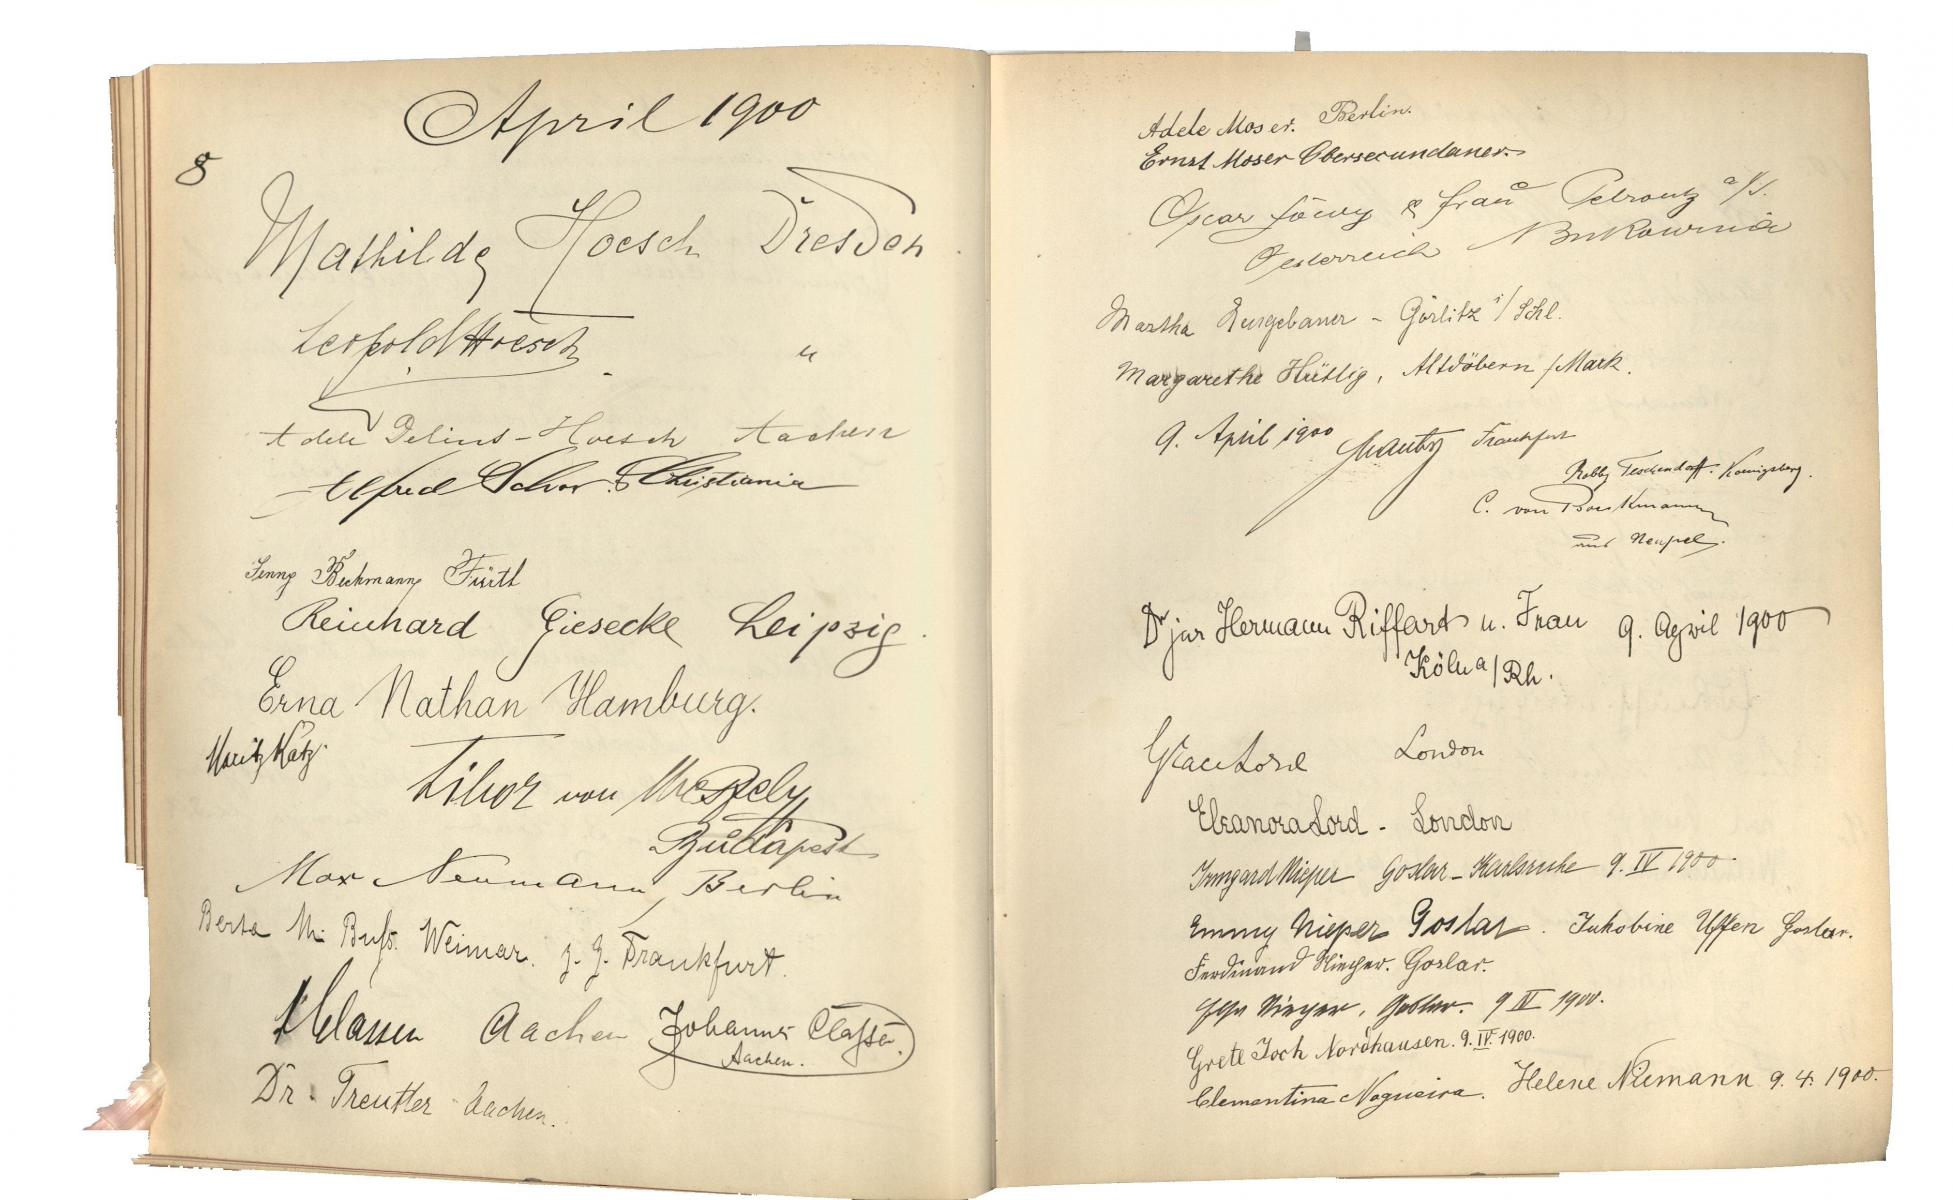 April 1900
8
Mathilde Hoesch Dresden
Leopold Hoesch "
Adele Delius-Hoesch Aachen
Alfred Christiania
Jenny Beckmann Fürth
Reinhard Giesecke Leipzig.
Erna Nathan Hamburg.
Moritz Katz.
Tibor von
Budapest
Max Neumann, Berlin
Berta M. Weimar. z. Z. Frankfurt.
Classen Aachen Johannes Classen.
Aachen.
Dr. Treutler Aachen.
Adele Moser. Berlin.
Ernst Moser Obersecundaner.
Oscar & Frau a/S.
Oesterreich Bukowina
Martha - Görlitz i/Schl.
Margarethe Hüttig, Altdöbern /Mark.
9. April 1900 Frankfurt
Robby Teschendorff. Koenigsberg.
C. von
aus Neapel.
Dr jur Hermann Riffart u. Frau 9. April 1900
Köln a/Rh.
Grace Lord London
Eleanora Lord - London
Irmgard Nieper Goslar - Karlsruhe 9. IV 1900.
Emmy Nieper Goslar. Jakobine Uffen Goslar.
Ferdinand Nieper. Goslar.
Nieper, Goslar. 9 IV 1900.
Grete Joch Nordhausen. 9. IV. 1900.
Clementina Nogueira. Helene Niemann 9. 4. 1900.